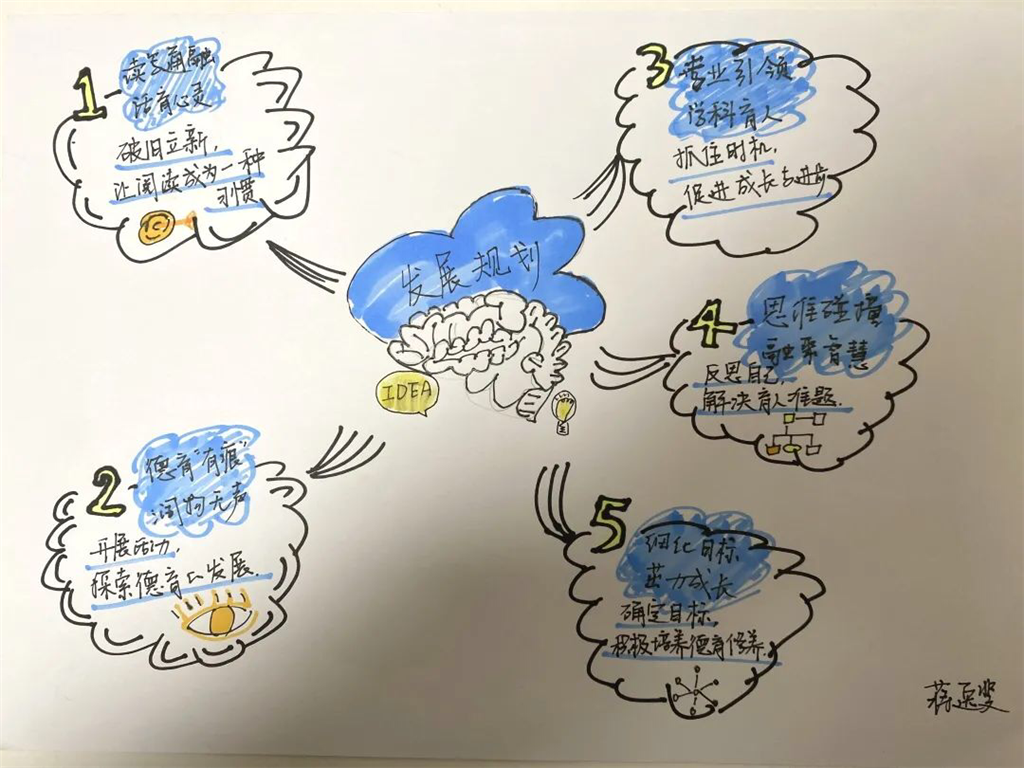 发展规划
IDEA
1
通融
育心灵
破旧立新,
让阅读成为一种
习惯
2
德育"有痕"
润物无声
开展活动,
探索德育 发展.
3
专业引领
学科育人
抓住时机,
促进成长与进步
4
思维碰撞
融聚智慧
反思自己,
解决育人难题.
5
细化目标
力成长
确定目标,
积极培养德育修养.